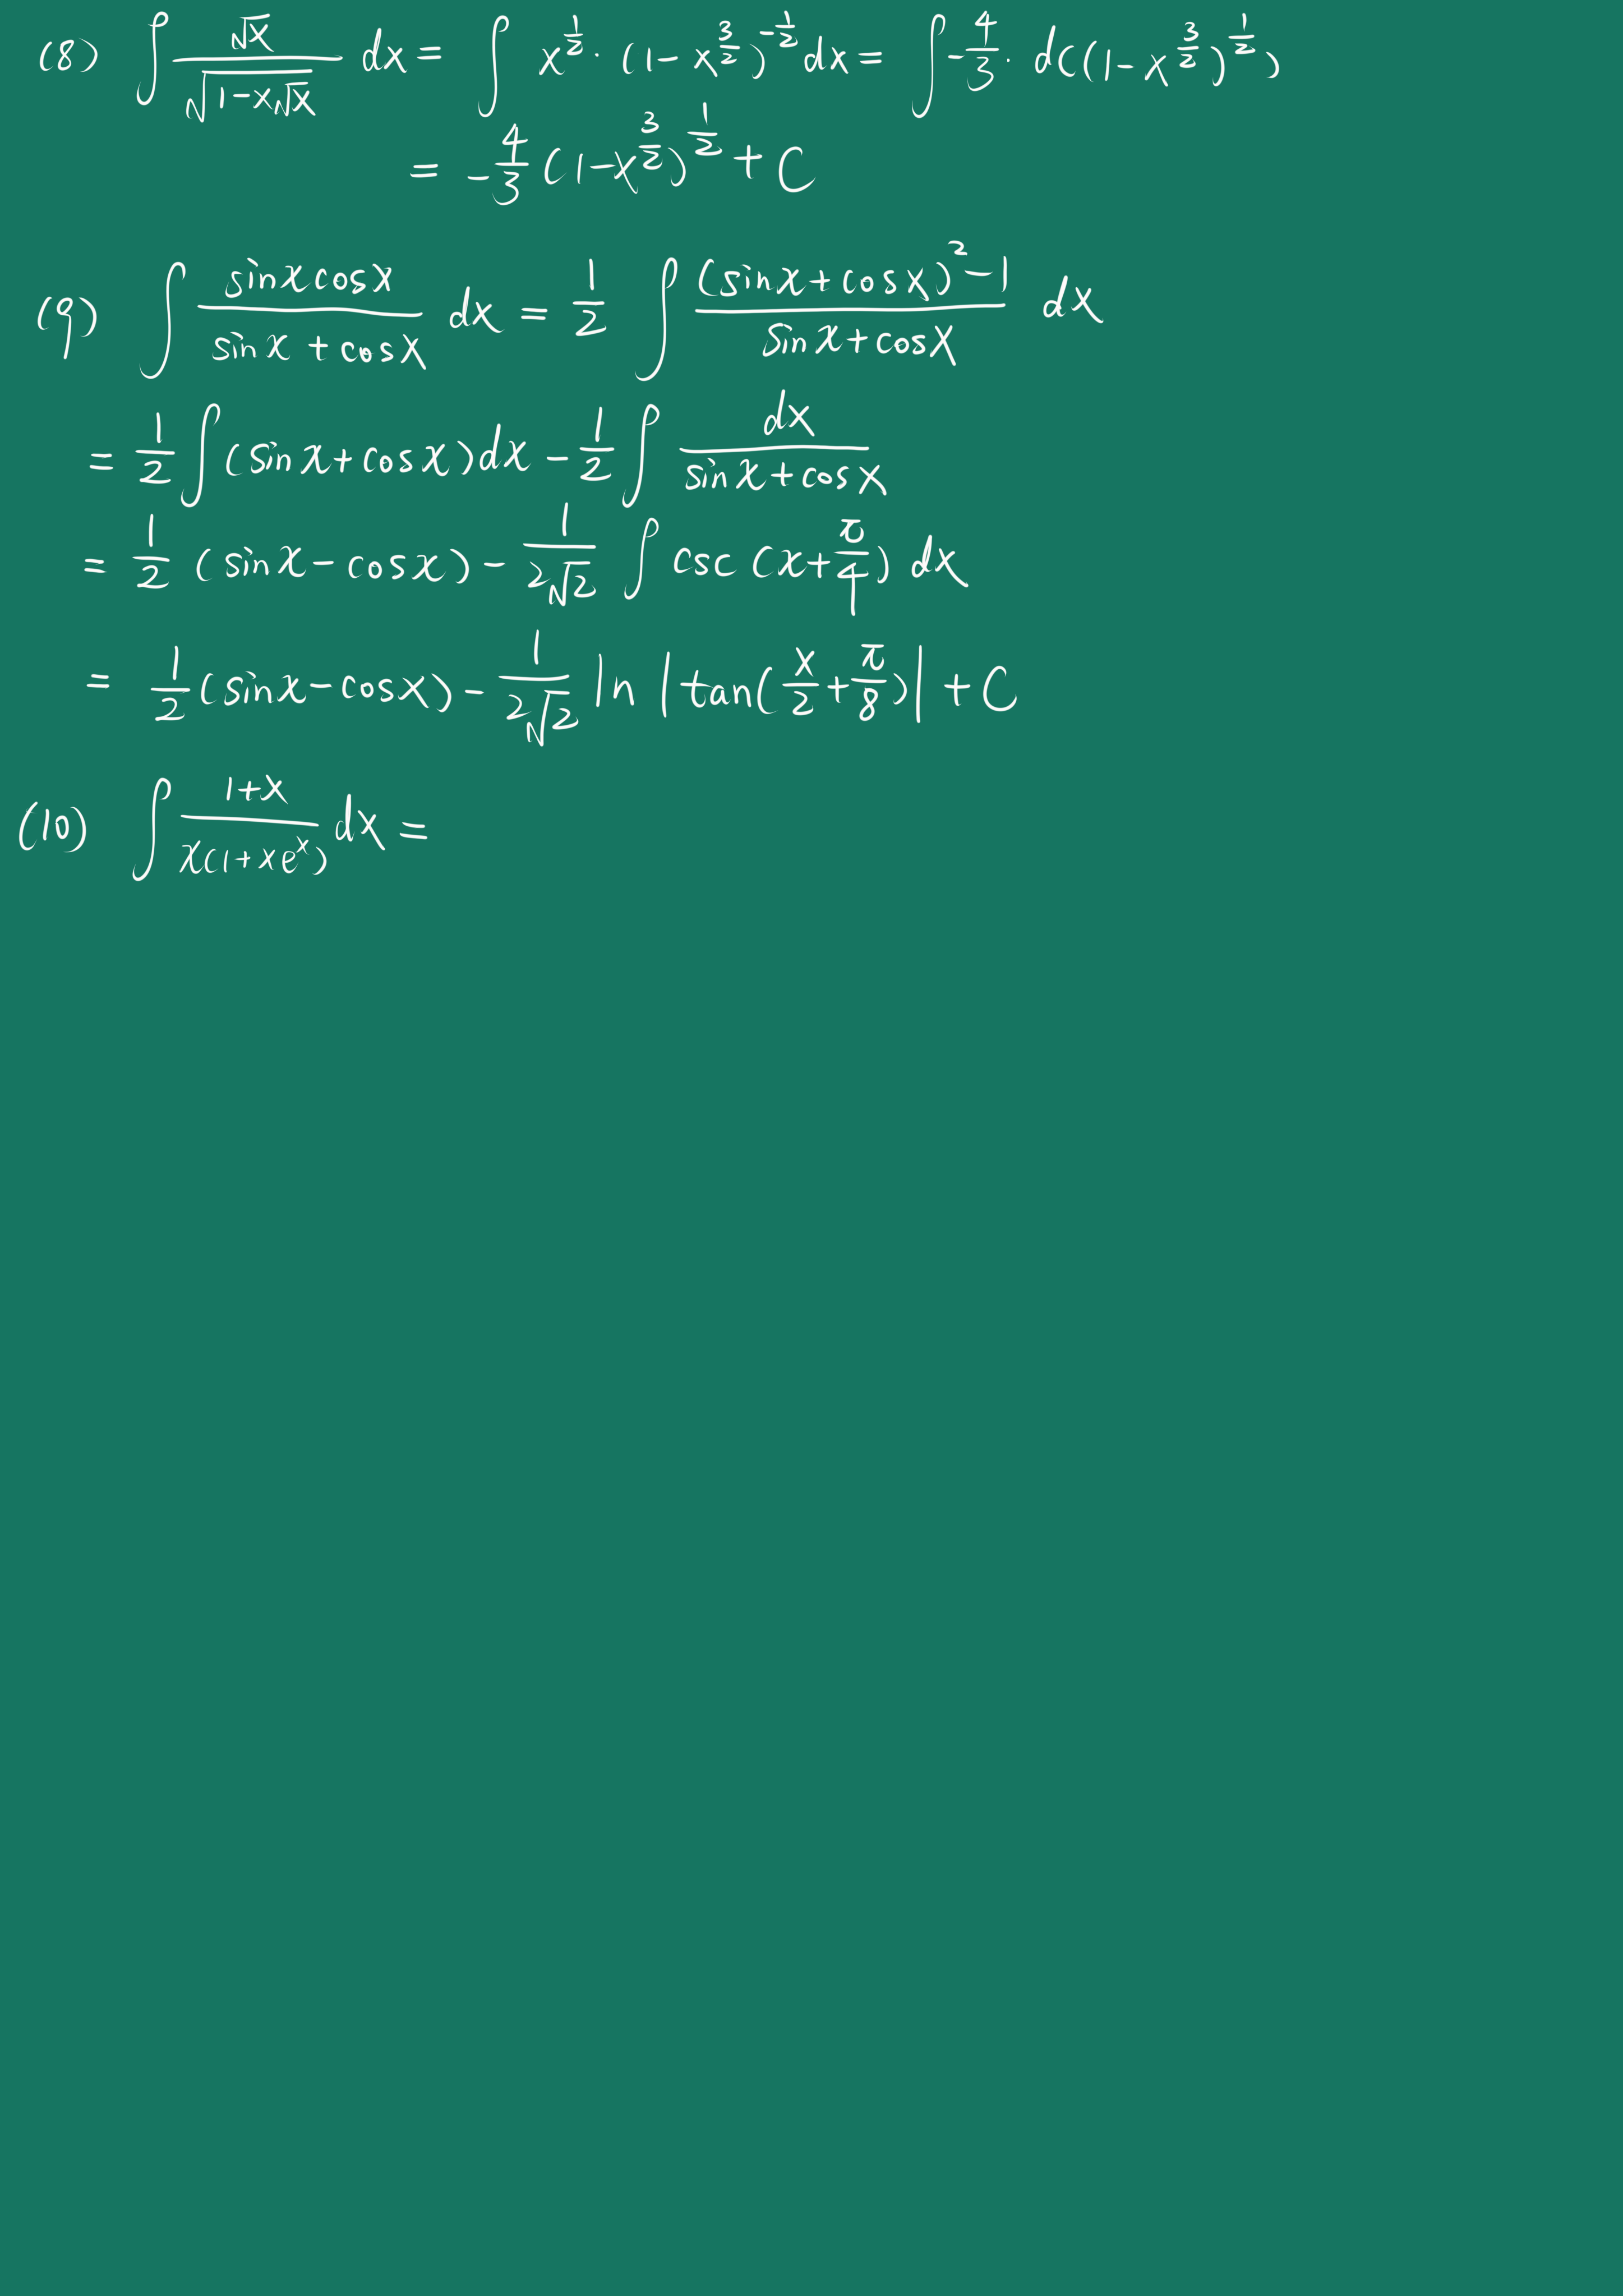 (8) ∫ √x / √(1-x√x) dx = ∫ x^(1/2) · (1-x^(3/2))^(-1/2) dx = ∫ -4/3 · d((1-x^(3/2))^(1/2))
= -4/3 (1-x^(3/2))^(1/2) + C
(9) ∫ sinx cosx / (sinx + cosx) dx = 1/2 ∫ ((sinx+cosx)^2 - 1) / (sinx+cosx) dx
= 1/2 ∫ (sinx+cosx)dx - 1/2 ∫ dx / (sinx+cosx)
= 1/2 (sinx-cosx) - 1/(2√2) ∫ csc(x+π/4) dx
= 1/2 (sinx-cosx) - 1/(2√2) ln |tan(x/2+π/8)| + C
(10) ∫ (1+x) / (x(1+xe^x)) dx =